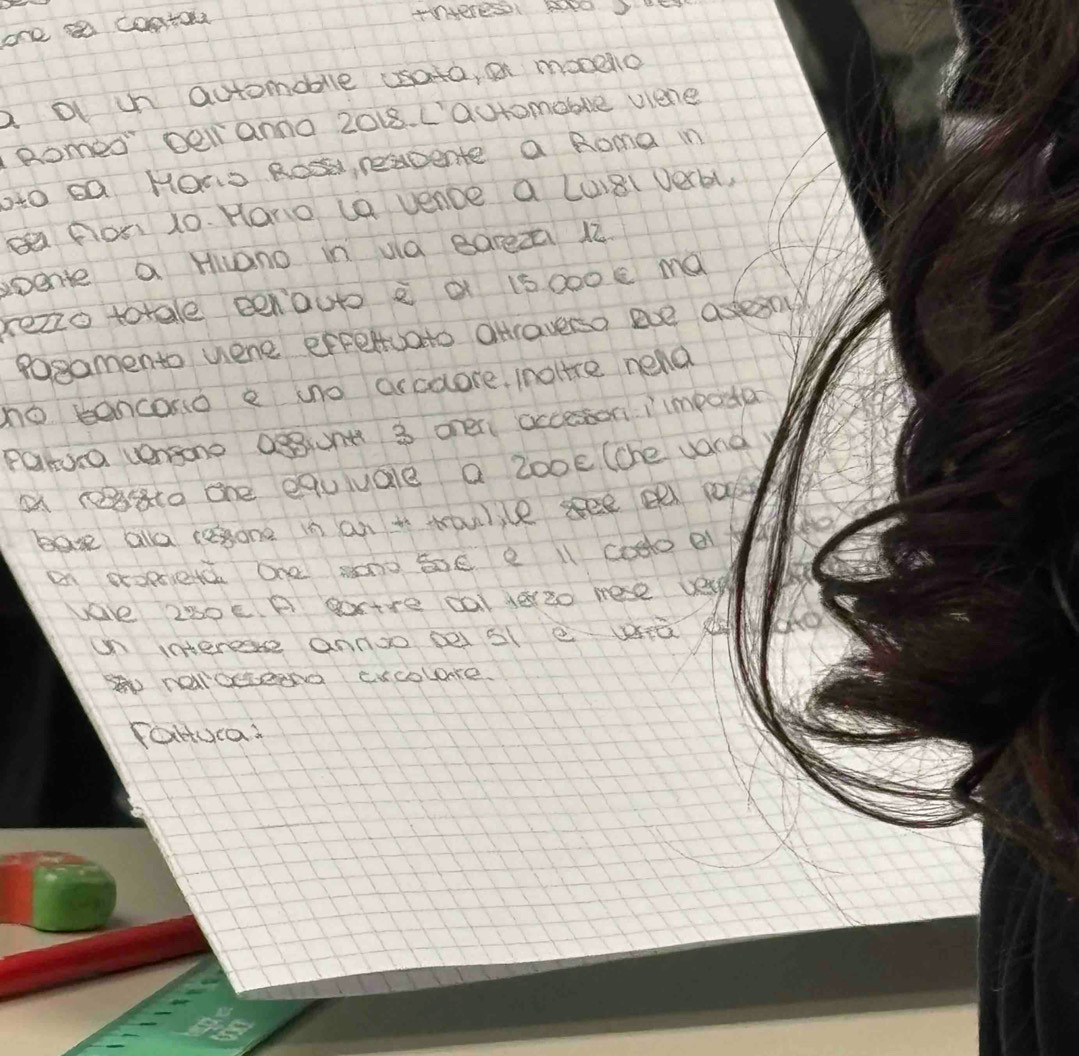 one contau
+interessi dopo 3
a di un automobile usata, di modello
Romeo" dell'anno 2018. L'automobile viene
da Mario Rossi, residente a Roma in
fiori 10. Mario la vende a Luigi Verbi,
idente a Milano in via Barezzi 12.
prezzo totale dell'auto è di 15.000€ ma
Pagamento viene effettuato attraverso due assegni
no bancario e uno circolare. Inoltre nella
Fattura vengono aggiunti 3 oneri accessori: l'imposta
di registro che equivale a 200€ (che varia
base alla regione in cui
di proprietà che sono 50€ e il costo di
vale 230€. A partire dal terzo mese
un interesse annuo del 51 e verrà
nell'assegno circolare.
Fattura: